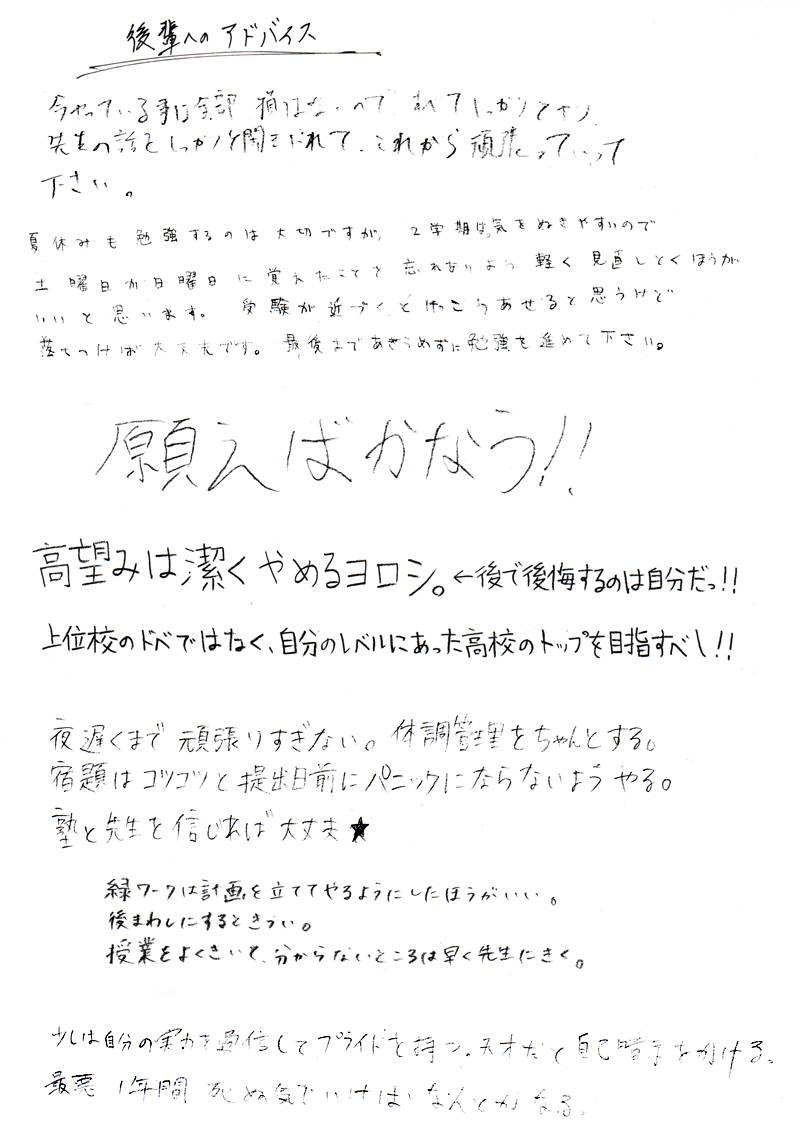 後輩へのアドバイス
今やっている事は全部 損はないので 全てしっかりとやり、
先生の話をしっかりと聞き入れて、これから頑張っていって
下さい。
夏休みも勉強するのは大切ですが、2学期は気をぬきやすいので
土曜日か日曜日に覚えたことを忘れないよう軽く見直しとくほうが
いいと思います。受験が近づくとけっこうあせると思うけど
落ちつけば大丈夫です。最後まであきらめずに勉強を進めて下さい。
願えばかなう!!
高望みは潔くやめるヨロシ。←後で後悔するのは自分だっ!!
上位校のドベではなく、自分のレベルにあった高校のトップを目指すべし!!
夜遅くまで頑張りすぎない。体調管理をちゃんとする。
宿題はコツコツと提出日前にパニックにならないようやる。
塾と先生を信じれば大丈夫★
緑ワークは計画を立ててやるようにしたほうがいい。
後まわしにするときつい。
授業をよくきいて、分からないところは早く先生にきく。
少しは自分の実力を過信してプライドを持つ。天才だと自己暗示をかける。
最悪 1年間 死ぬ気でいけば なんとかなる。